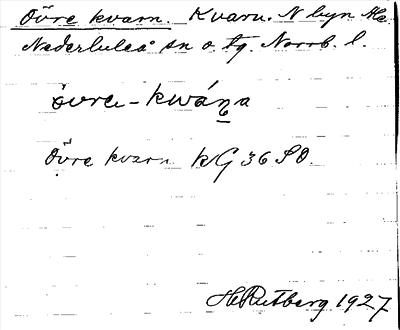 Övre kvarn. Kvarn. N byn
Nederluleå sn o. tg. Norrb. l.
övre-kwáṇa
Övre kvarn KG 36 SO.
H Rutberg 1927